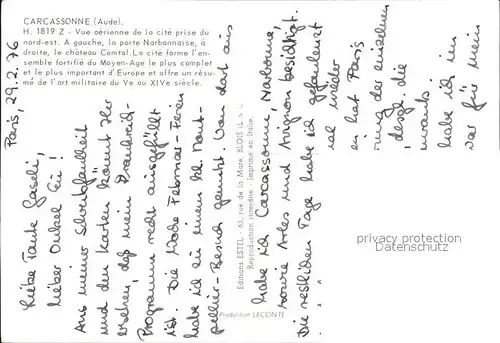 CARCASSONNE (Aude).
H. 1819 Z - Vue aérienne de la cité prise du
nord-est. A gauche, la porte Narbonnaise, à
droite, le château Comtal. La cité forme l'en-
semble fortifié du Moyen-Age le plus complet
et le plus important d'Europe et offre un résu-
mé de l'art militaire du Ve au XIVe siècle.
Paris, 29.2.76
Liebe Tante
lieber Onkel
Aus meiner Schreibfaulheit
und den Karten kannst Ihr
ersehen, daß mein Frankreich-
Programm recht ausgefüllt
ist. Die Woche Februar-Ferien
habe ich zu einem
pellier-Besuch genutzt. Von dort aus
habe ich Carcassonne, Narbonne,
sowie Arles und Avignon besichtigt.
Die restlichen Tage habe ich gefaulenzt
wieder
hat Paris
der einzelnen
die
habe ich im
war für mein
Editions ESTEL - 63, rue de la Mare, BLOIS (L. & C.)
Reproduction interdite - Imprimé en Italie
Production LECONTE
privacy protection
Datenschutz